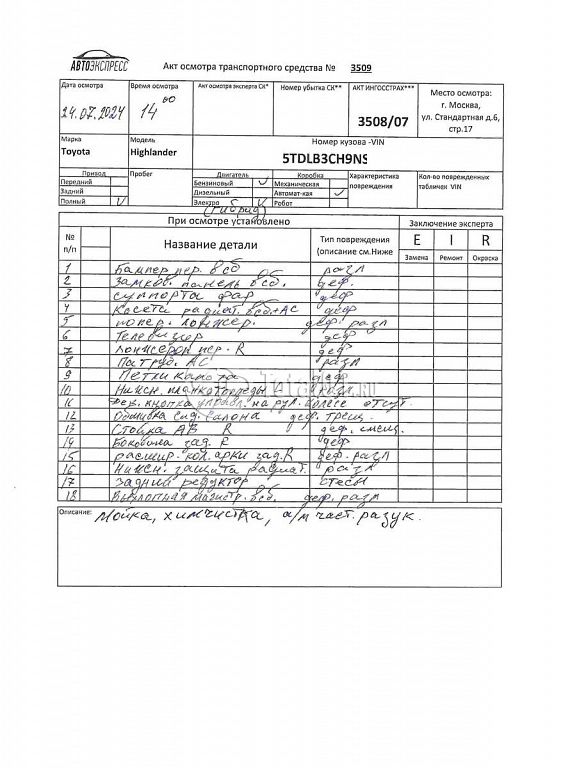 АВТОЭКСПРЕСС
Акт осмотра транспортного средства № 3509
Дата осмотра Время осмотра Акт осмотра эксперта СК* Номер убытка СК** АКТ ИНГОССТРАХ*** Место осмотра:
24.07.2024 14 00 3508/07 г. Москва,
ул. Стандартная д.6,
стр.17
Марка Модель Номер кузова -VIN
Toyota Highlander 5TDLB3CH9NS
Привод Пробег Двигатель Коробка Характеристика повреждения Кол-во поврежденных табличек VIN
Передний Бензиновый V Механическая
Задний Дизельный Автомат-кая V
Полный V Электро V Робот
(гибрид)
При осмотре установлено Заключение эксперта
№ п/п Название детали Тип повреждения (описание см.Ниже E I R
Замена Ремонт Окраска
1 Бампер пер. в сб разл
2 Замков. панель в сб. деф.
3 суппорта фар деф
4 Касеты радиат. в сб.+АС деф
5 попер. лонжер. деф. разл
6 Телевизор деф
7 лонжерон пер. R деф
8 Патруб. АС разл
9 Петли капота деф
10 Нижн. планка торпеды разл
11 кнопка управл. на рул. колесе отсут.
12 Обшивка сид. салона деф. трещ.
13 Стойка АВ R деф. смещ.
14 Боковина зад. R деф
15 расшир. кол. арки зад. R деф. разл
16 Нижн. защита радиат. разл
17 Задний редуктор стесы
18 Выхлопная магистр. в сб. деф. разл
Описание: Мойка, химчистка, а/м част. разук.